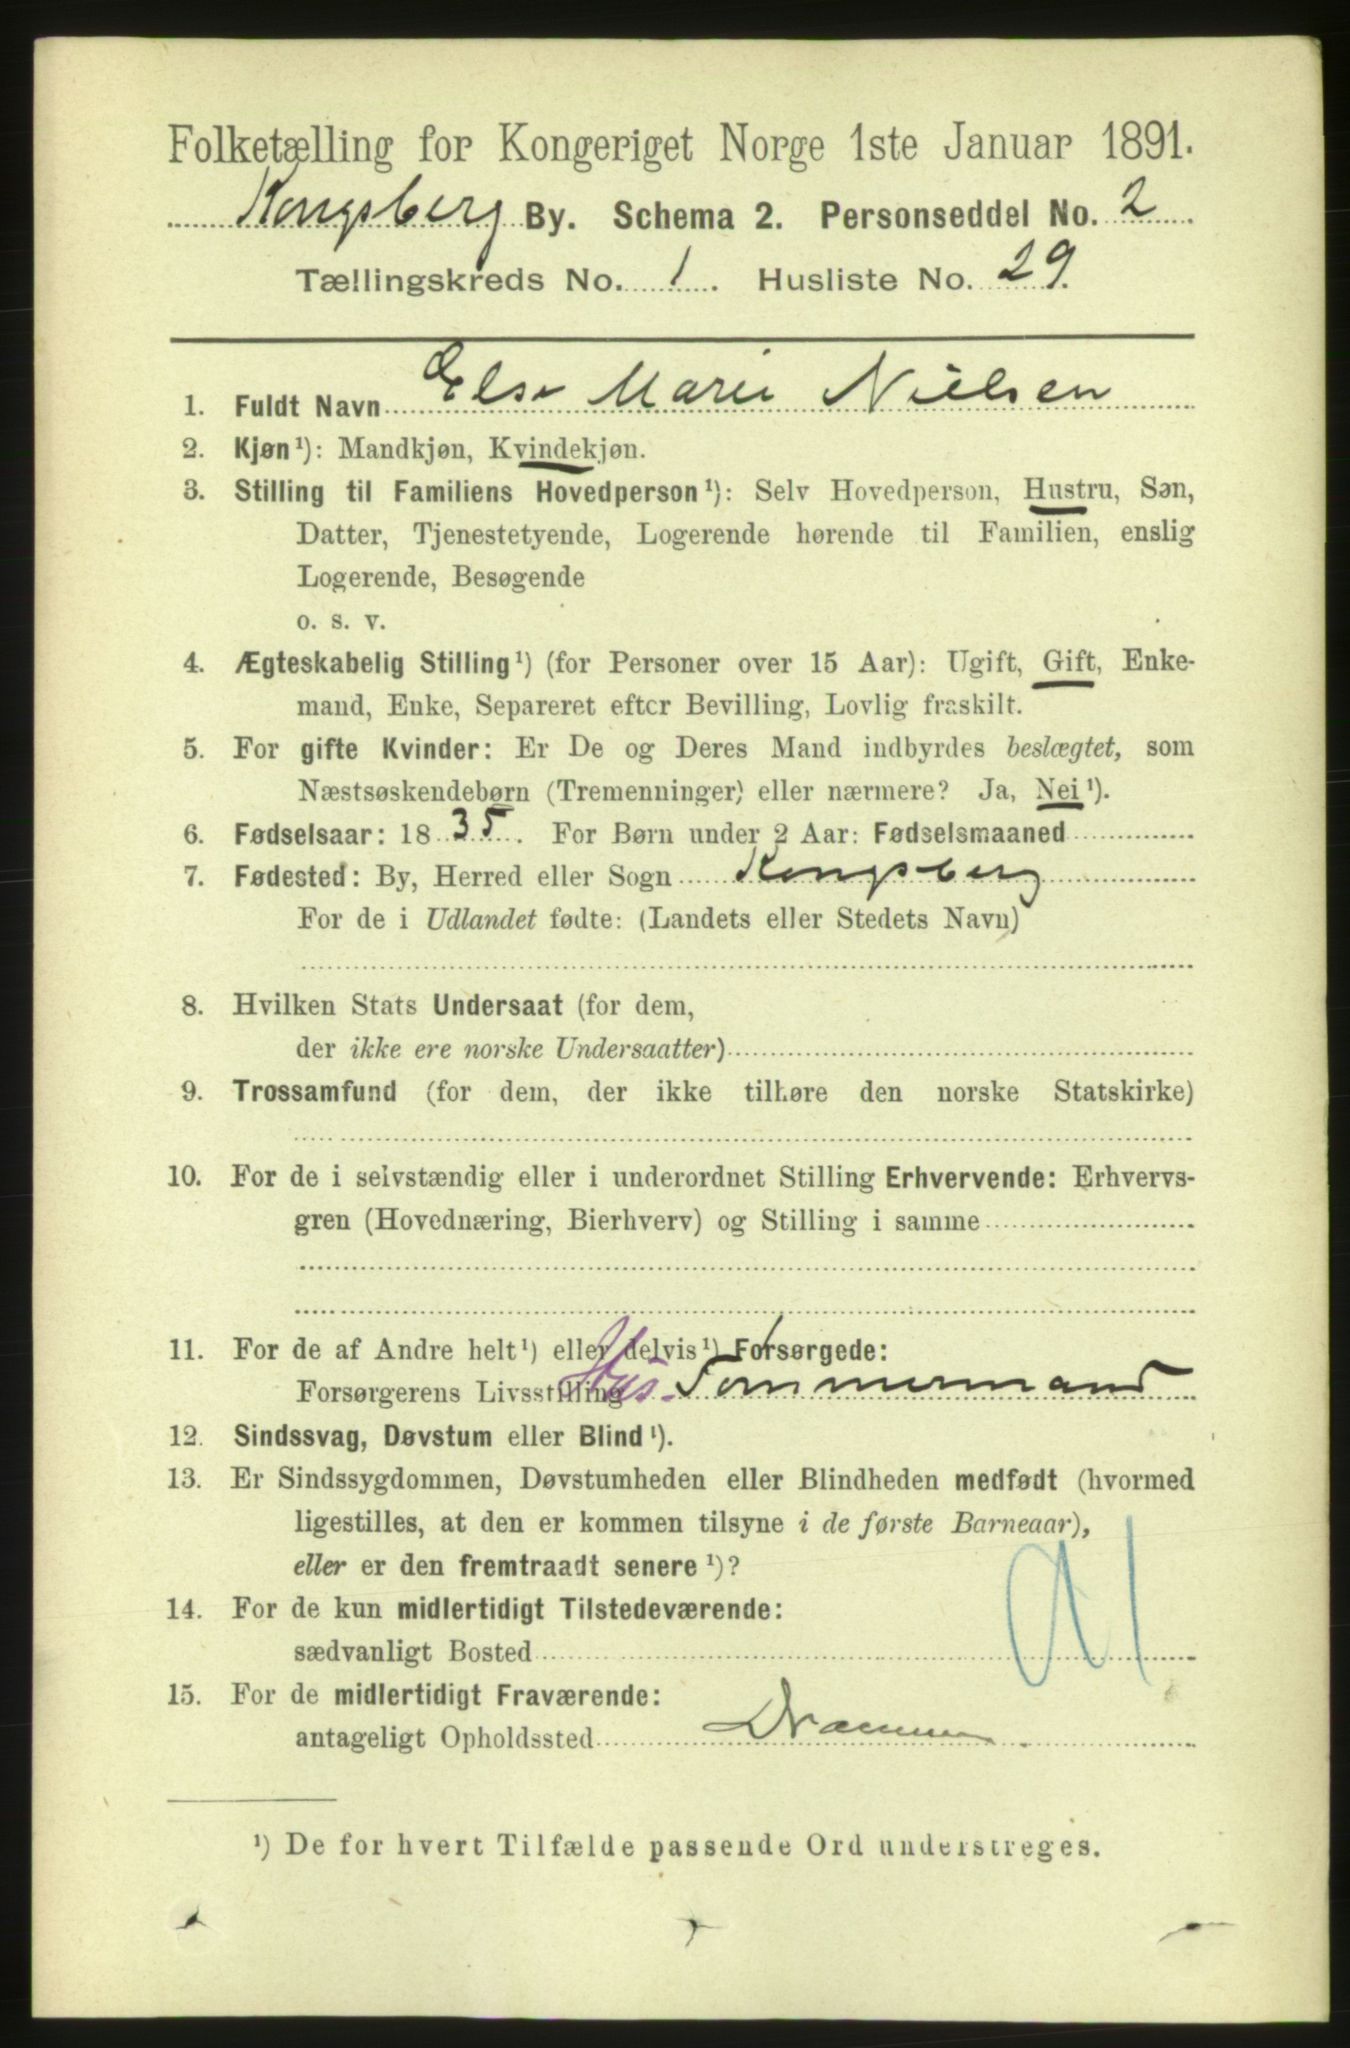 Folketælling for Kongeriget Norge 1ste Januar 1891.
Kongsberg By. Schema 2. Personseddel No. 2
Tællingskreds No. 1. Husliste No. 29.
1. Fuldt Navn Else Marie Nielsen
2. Kjøn¹): Mandkjøn, Kvindekjøn.
3. Stilling til Familiens Hovedperson¹): Selv Hovedperson, Hustru, Søn,
Datter, Tjenestetyende, Logerende hørende til Familien, enslig
Logerende, Besøgende
o. s. v.
4. Ægteskabelig Stilling¹) (for Personer over 15 Aar): Ugift, Gift, Enke-
mand, Enke, Separeret efter Bevilling, Lovlig fraskilt.
5. For gifte Kvinder: Er De og Deres Mand indbyrdes beslægtet, som
Næstsøskendebørn (Tremenninger) eller nærmere? Ja, Nei¹).
6. Fødselsaar: 1835. For Børn under 2 Aar: Fødselsmaaned
7. Fødested: By, Herred eller Sogn Kongsberg
For de i Udlandet fødte: (Landets eller Stedets Navn)
8. Hvilken Stats Undersaat (for dem,
der ikke ere norske Undersaatter)
9. Trossamfund (for dem, der ikke tilhøre den norske Statskirke)
10. For de i selvstændig eller i underordnet Stilling Erhvervende: Erhvervs-
gren (Hovednæring, Bierhverv) og Stilling i samme
11. For de af Andre helt¹) eller delvis¹) Forsørgede:
Forsørgerens Livsstilling Hus-Tømmermand
12. Sindssvag, Døvstum eller Blind¹).
13. Er Sindssygdommen, Døvstumheden eller Blindheden medfødt (hvormed
ligestilles, at den er kommen tilsyne i de første Barneaar),
eller er den fremtraadt senere¹)?
14. For de kun midlertidigt Tilstedeværende:
sædvanligt Bosted
15. For de midlertidigt Fraværende:
antageligt Opholdssted Drammen
¹) De for hvert Tilfælde passende Ord understreges.